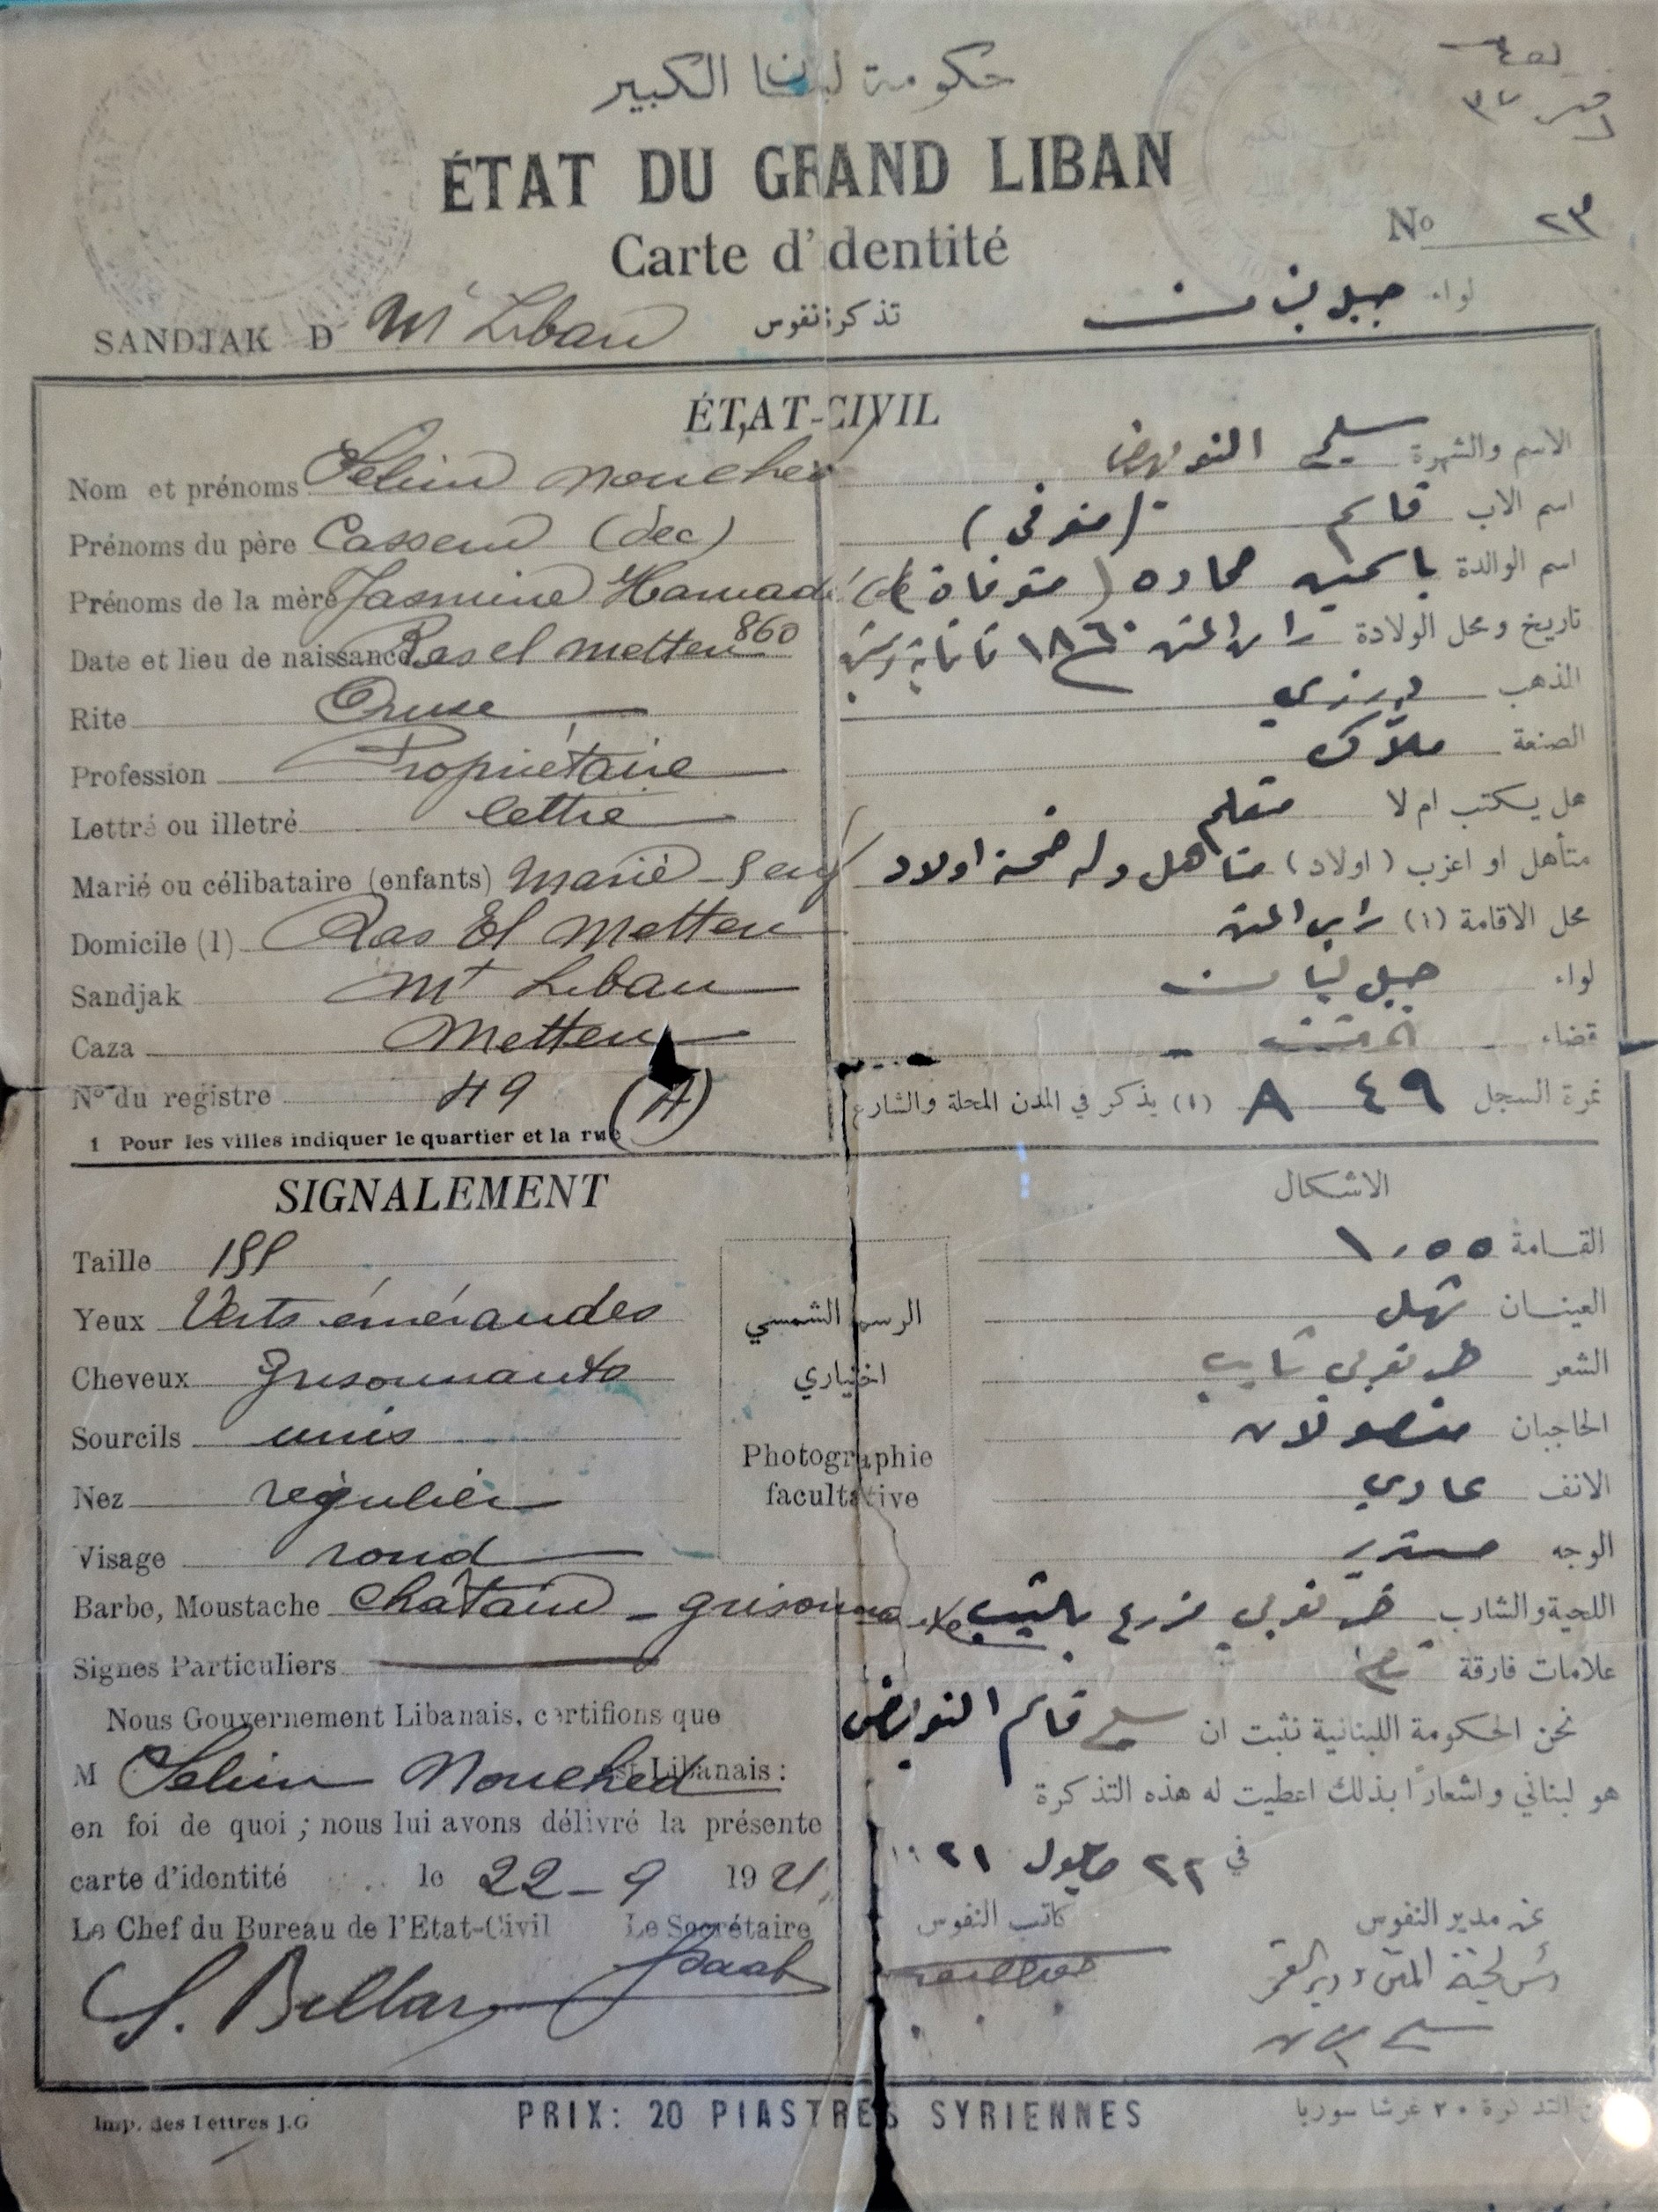 حكومة لبنان الكبير
نمرو ٣٧
ÉTAT DU GRAND LIBAN
Nº ٢٣
Carte d'identité
تذكرة نفوس
لواء جبل لبنان
SANDJAK D Mt Liban
ÉTAT-CIVIL
Nom et prénoms Selim Nouehed
الاسم والشهرة سليم النويهض
Prénoms du père Cassem (dec)
اسم الاب قاسم (متوفي)
Prénoms de la mère Jasmine Hamadé (dé
اسم الوالدة ياسمين حماده (متوفاة)
Date et lieu de naissance Ras el Metten 860
تاريخ ومحل الولادة راس المتن ١٨٦٠
Rite Druse
المذهب درزي
Profession Propriétaire
الصنعة ملاك
Lettré ou illetré lettré
هل يكتب ام لا متعلم
Marié ou célibataire (enfants) Marié -
متأهل او اعزب (اولاد) متاهل وله خمسة اولاد
Domicile (1) Ras El Metten
محل الاقامة (١) راس المتن
Sandjak Mt Liban
لواء جبل لبنان
Caza Metten
قضاء المتن
Nº du registre 49 (A)
نمرة السجل ٤٩ A
(١) يذكر في المدن المحلة والشارع
1 Pour les villes indiquer le quartier et la rue
SIGNALEMENT
الاشكال
Taille 155
القامة ١٫٥٥
Yeux Verts émeraudes
العينان شهل
Cheveux grisonnants
الشعر خرنوبي شايب
Sourcils unis
الحاجبان متصولان
Nez régulier
الانف عادي
Visage rond
الوجه مستدير
Barbe, Moustache Châtain - grisonnante
اللحية والشارب خرنوبي مزرع بالشيب
Signes Particuliers
علامات فارقة
الرسم الشمسي
اختياري
Photographie
facultative
Nous Gouvernement Libanais, certifions que
نحن الحكومة اللبنانية نثبت ان سليم قاسم النويهض
M Selim Nouehed est Libanais :
هو لبناني واشعاراً بذلك اعطيت له هذه التذكرة
en foi de quoi ; nous lui avons délivré la présente
carte d'identité le 22 - 9 1921
في ٢٢ ايلول ١٩٢١
Le Chef du Bureau de l'Etat-Civil Le Secrétaire
كاتب النفوس
عن مدير النفوس
رئيس لجنة المتن ودير القمر
Imp. des Lettres J.G
PRIX: 20 PIASTRES SYRIENNES
التذكرة ٢٠ غرشا سوريا